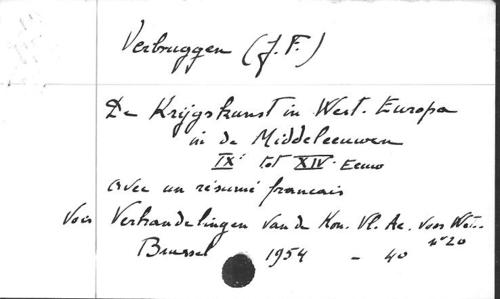 Verbruggen (J. F.)
De Krijgskunst in West. Europa
in de Middeleeuwen
IXᵉ tot XIVᵉ Eeuw
avec un résumé francais
Voir Verhandelingen van de Kon. Vl. Ac. voor Wet..
n° 20
Brussel 1954 - 40